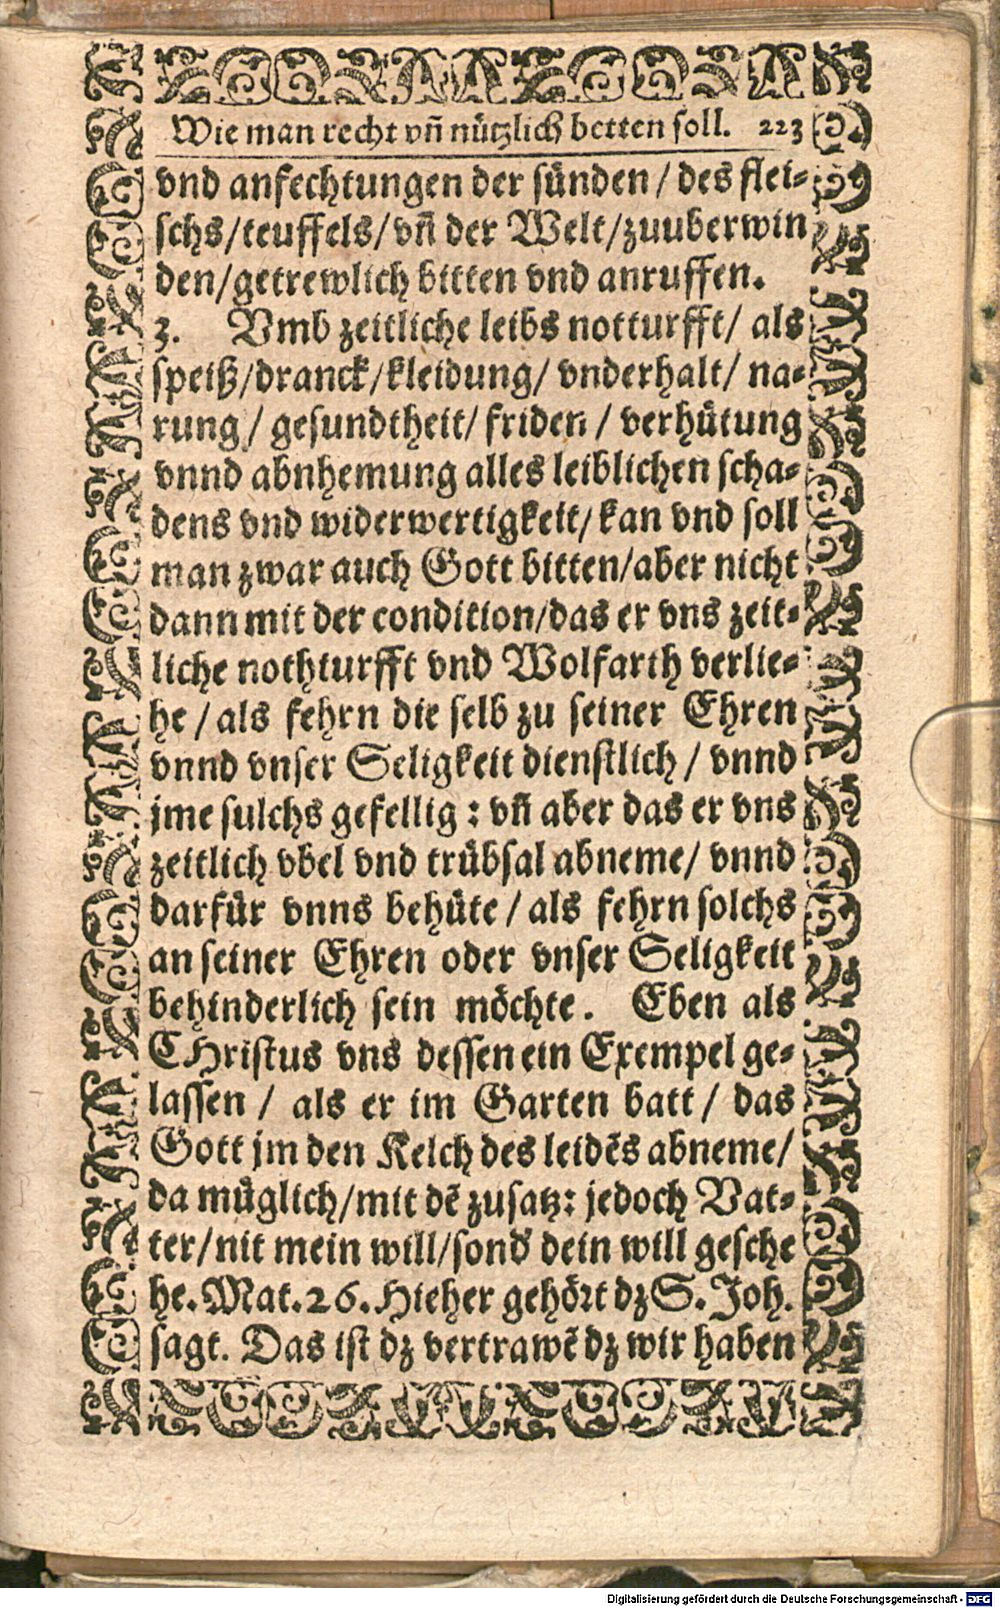 Wie man recht vñ nützlich betten soll. 223
vnd anfechtungen der sünden / des flei⸗
schs/teuffels/vñ der Welt/zuuberwin
den/getrewlich bitten vnd anruffen.
3. Vmb zeitliche leibs notturfft/ als
speiß/dranck/kleidung/ vnderhalt/ na⸗
rung / gesundtheit/ friden / verhütung
vnnd abnhemung alles leiblichen scha⸗
dens vnd widerwertigkeit/kan vnd soll
man zwar auch Gott bitten/aber nicht
dann mit der condition/das er vns zeit⸗
liche nothturfft vnd Wolfarth verlie⸗
he / als fehrn die selb zu seiner Ehren
vnnd vnser Seligkeit dienstlich / vnnd
jme sulchs gefellig : vñ aber das er vns
zeitlich vbel vnd trübsal abneme/ vnnd
darfür vnns behüte / als fehrn solchs
an seiner Ehren oder vnser Seligkeit
behinderlich sein möchte. Eben als
CHristus vns dessen ein Exempel ge⸗
lassen / als er im Garten batt / das
Gott jm den Kelch des leidēs abneme/
da müglich/mit dē zusatz: jedoch Vat⸗
ter/nit mein will/sond' dein will gesche
he. Mat. 26. Hieher gehört dz S. Joh.
sagt. Das ist dz vertrawē dz wir haben
Digitalisierung gefördert durch die Deutsche Forschungsgemeinschaft - DFG